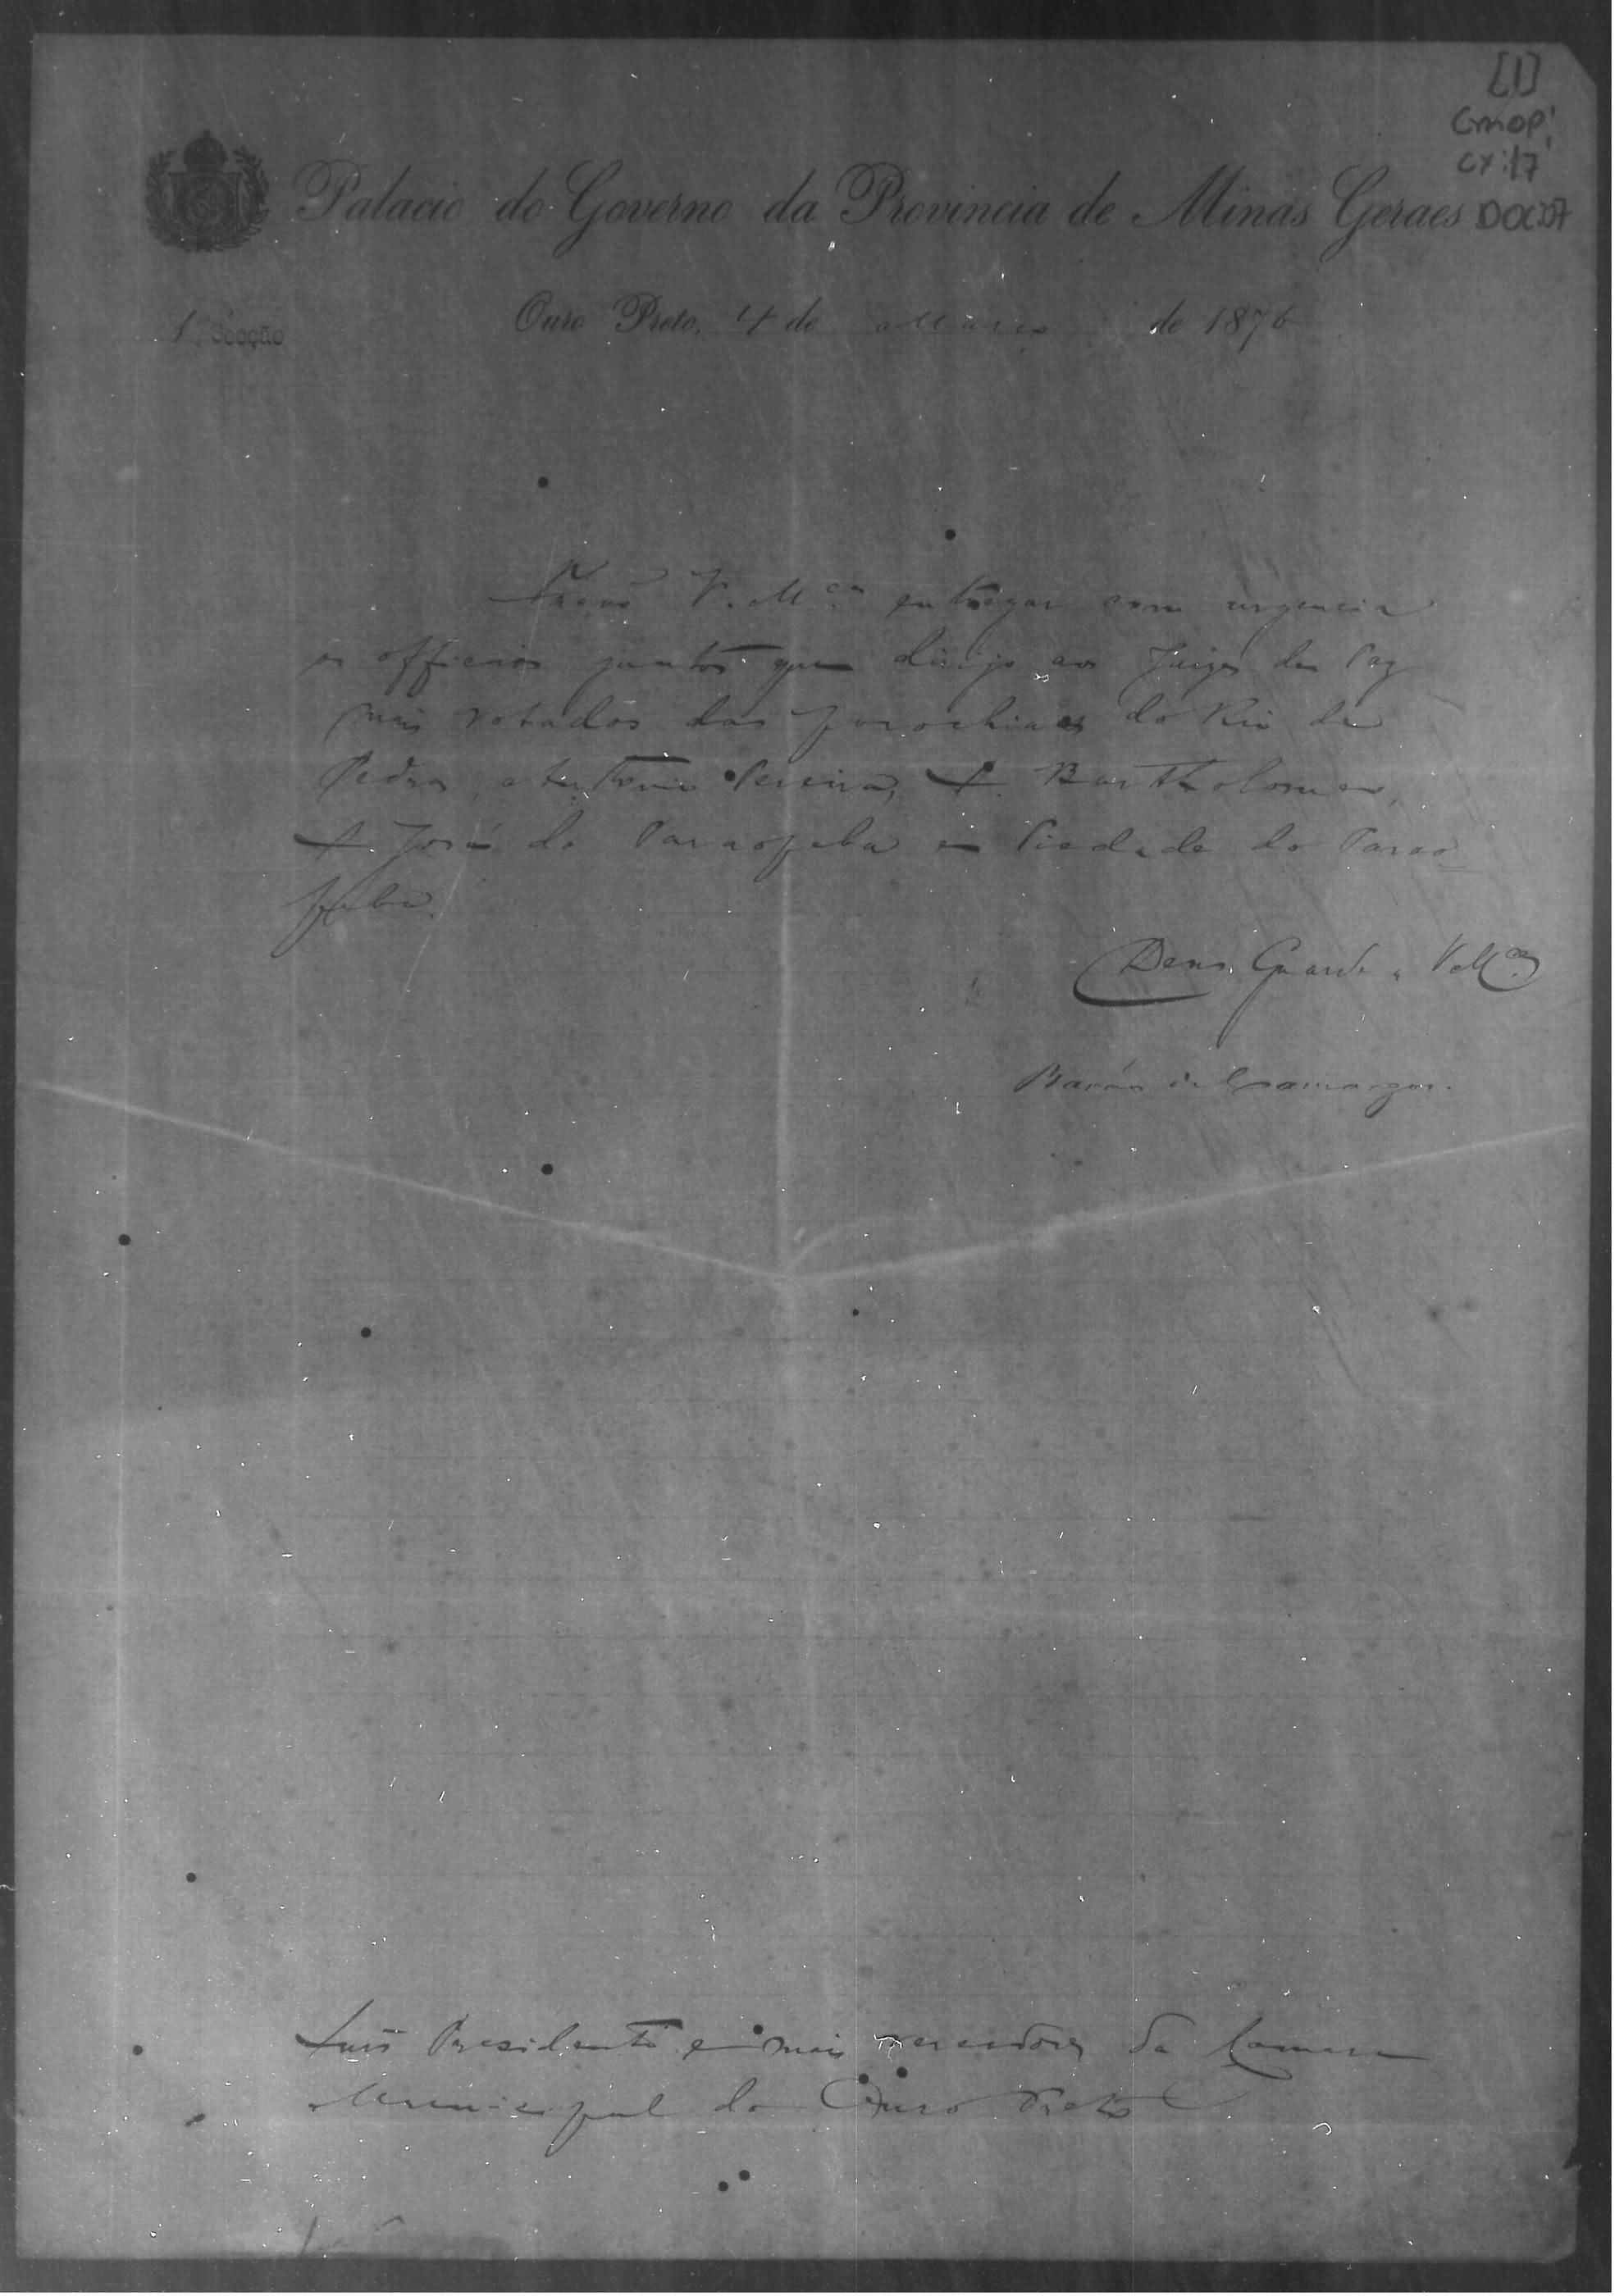 [1]
CMOP
CX:17
DOC:07
Palacio do Governo da Provincia de Minas Geraes
1ª Secção
Ouro Preto, 4 de Março de 1876
V. M.ces entregar com urgencia
os officios juntos que dirijo aos Juizes de Paz
mais votados das parochias do Rio de
Pedras, Antonio Pereira, S. Bartholomeu,
S. José do Paraopeba e Piedade do Parao-
peba.
Deus Guarde a V. M.ces
Barão de Camargos.
Snrs Presidente e mais vereadores da Camara
Municipal do Ouro Preto